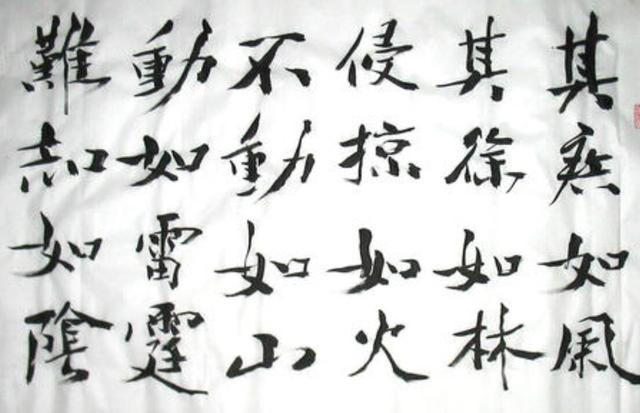 其疾如風
其徐如林
侵掠如火
不動如山
動如雷霆
難知如陰